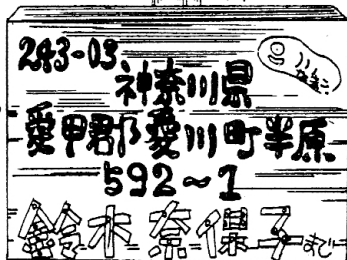 243-03
神奈川県
愛甲郡愛川町半原
592~1
鈴木奈保子まで